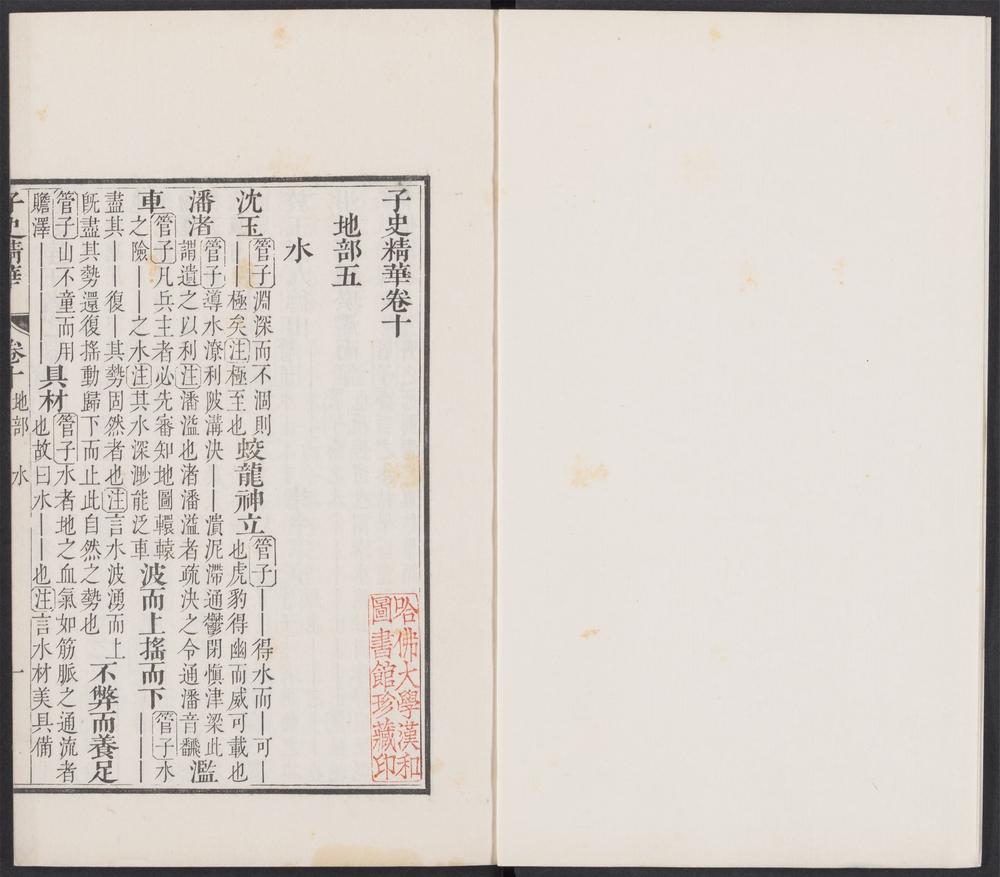 子史精華卷十
地部五
水
沈玉
管子淵深而不涸則
——極矣注極至也
蛟龍神立
管子——得水而——可—
也虎豹得幽而威可載也
潘渚
管子導水潦利陂溝決——潰泥滯通鬱閉愼津梁此
謂遺之以利注潘溢也渚潘溢者疏決之令通潘音飜
濫
車
管子凡兵主者必先審知地圖轘轅
之險——之水注其水深渺能泛車
波而上搖而下
管子水
———
盡其——復—其勢固然者也注言水波湧而上
旣盡其勢還復搖動歸下而止此自然之勢也
不弊而養足
管子山不童而用
贍澤—————
具材
管子水者地之血氣如筋脈之通流者
也故曰水——也注言水材美具備
子史精華
卷十
地部
水
一
哈佛大學漢和
圖書館珍藏印